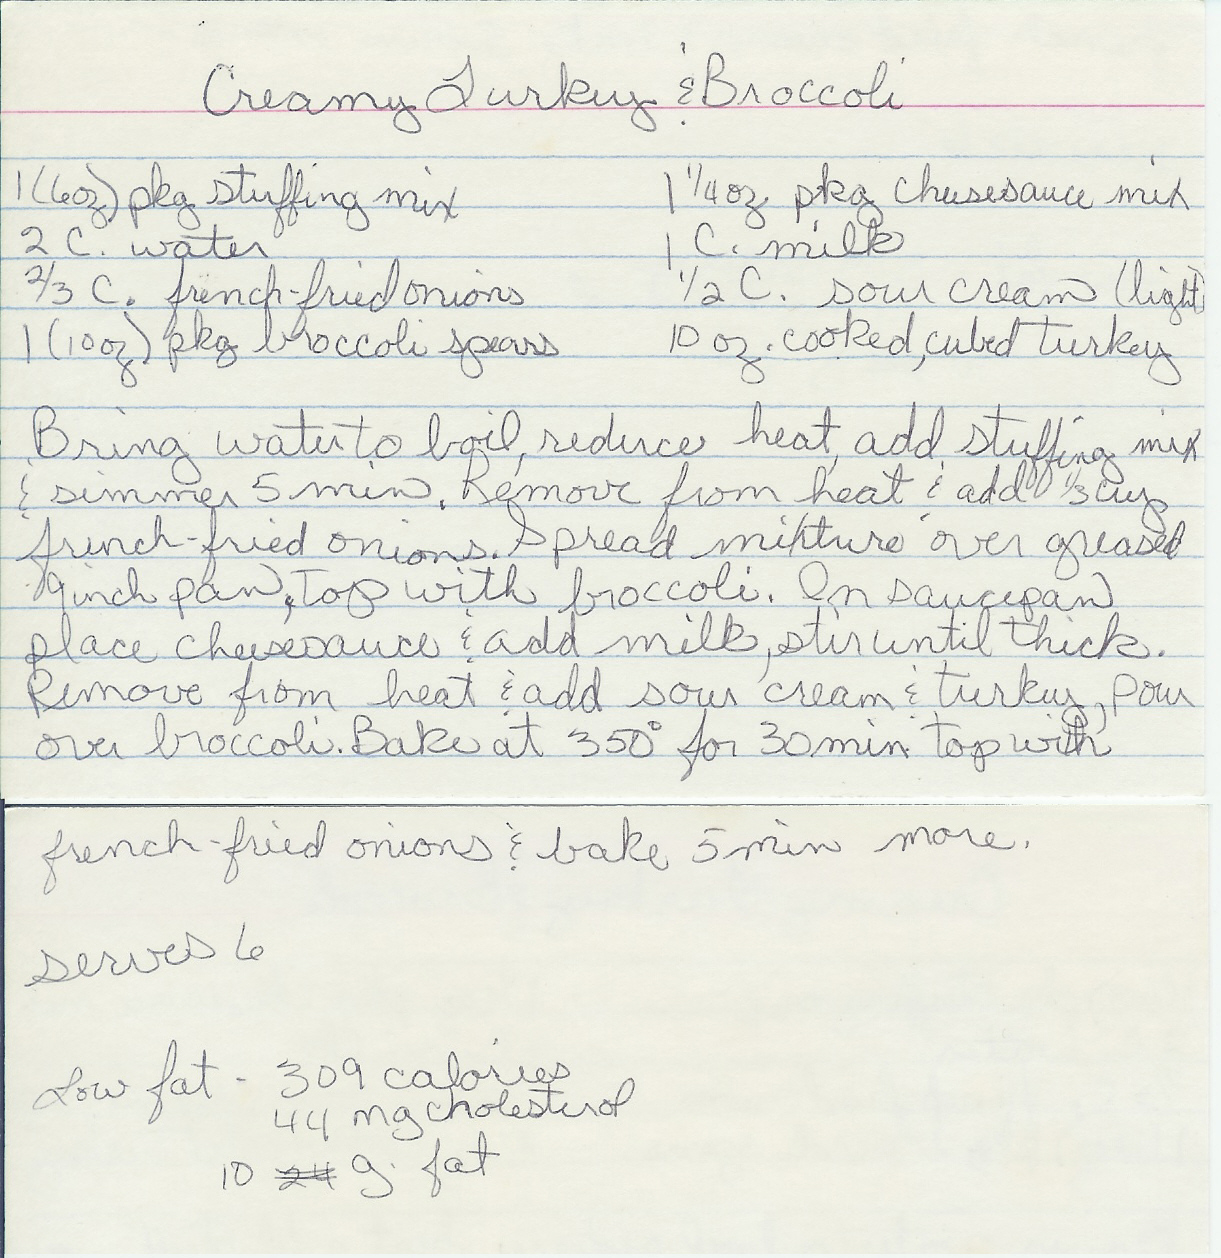 Creamy Turkey & Broccoli
1 (6oz) pkg stuffing mix
2 C. water
2/3 C. french-fried onions
1 (10oz) pkg broccoli spears
1 1/4 oz pkg cheesesauce mix
1 C. milk
1/2 C. sour cream (light)
10 oz. cooked, cubed turkey
Bring water to boil, reduce heat, add stuffing mix
& simmer 5 min. Remove from heat & add 1/3 cup
french-fried onions. Spread mixture over greased
9 inch pan, top with broccoli. In saucepan
place cheesesauce & add milk, stir until thick.
Remove from heat & add sour cream & turkey, pour
over broccoli. Bake at 350° for 30 min top with
french-fried onions & bake 5 min more.
serves 6
Low fat - 309 calories
44 mg cholesterol
10 24 g. fat